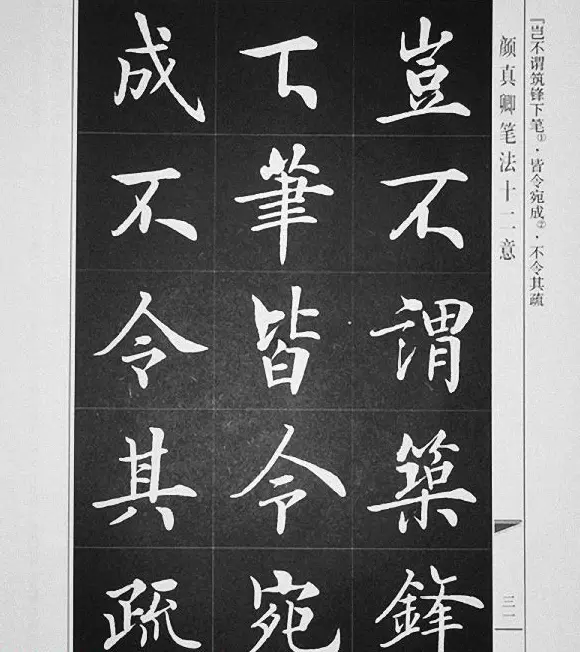 『岂不谓筑锋下笔①·皆令宛成②·不令其疏
颜真卿笔法十二意
三一
豈不謂築鋒
下筆皆令宛
成不令其疏